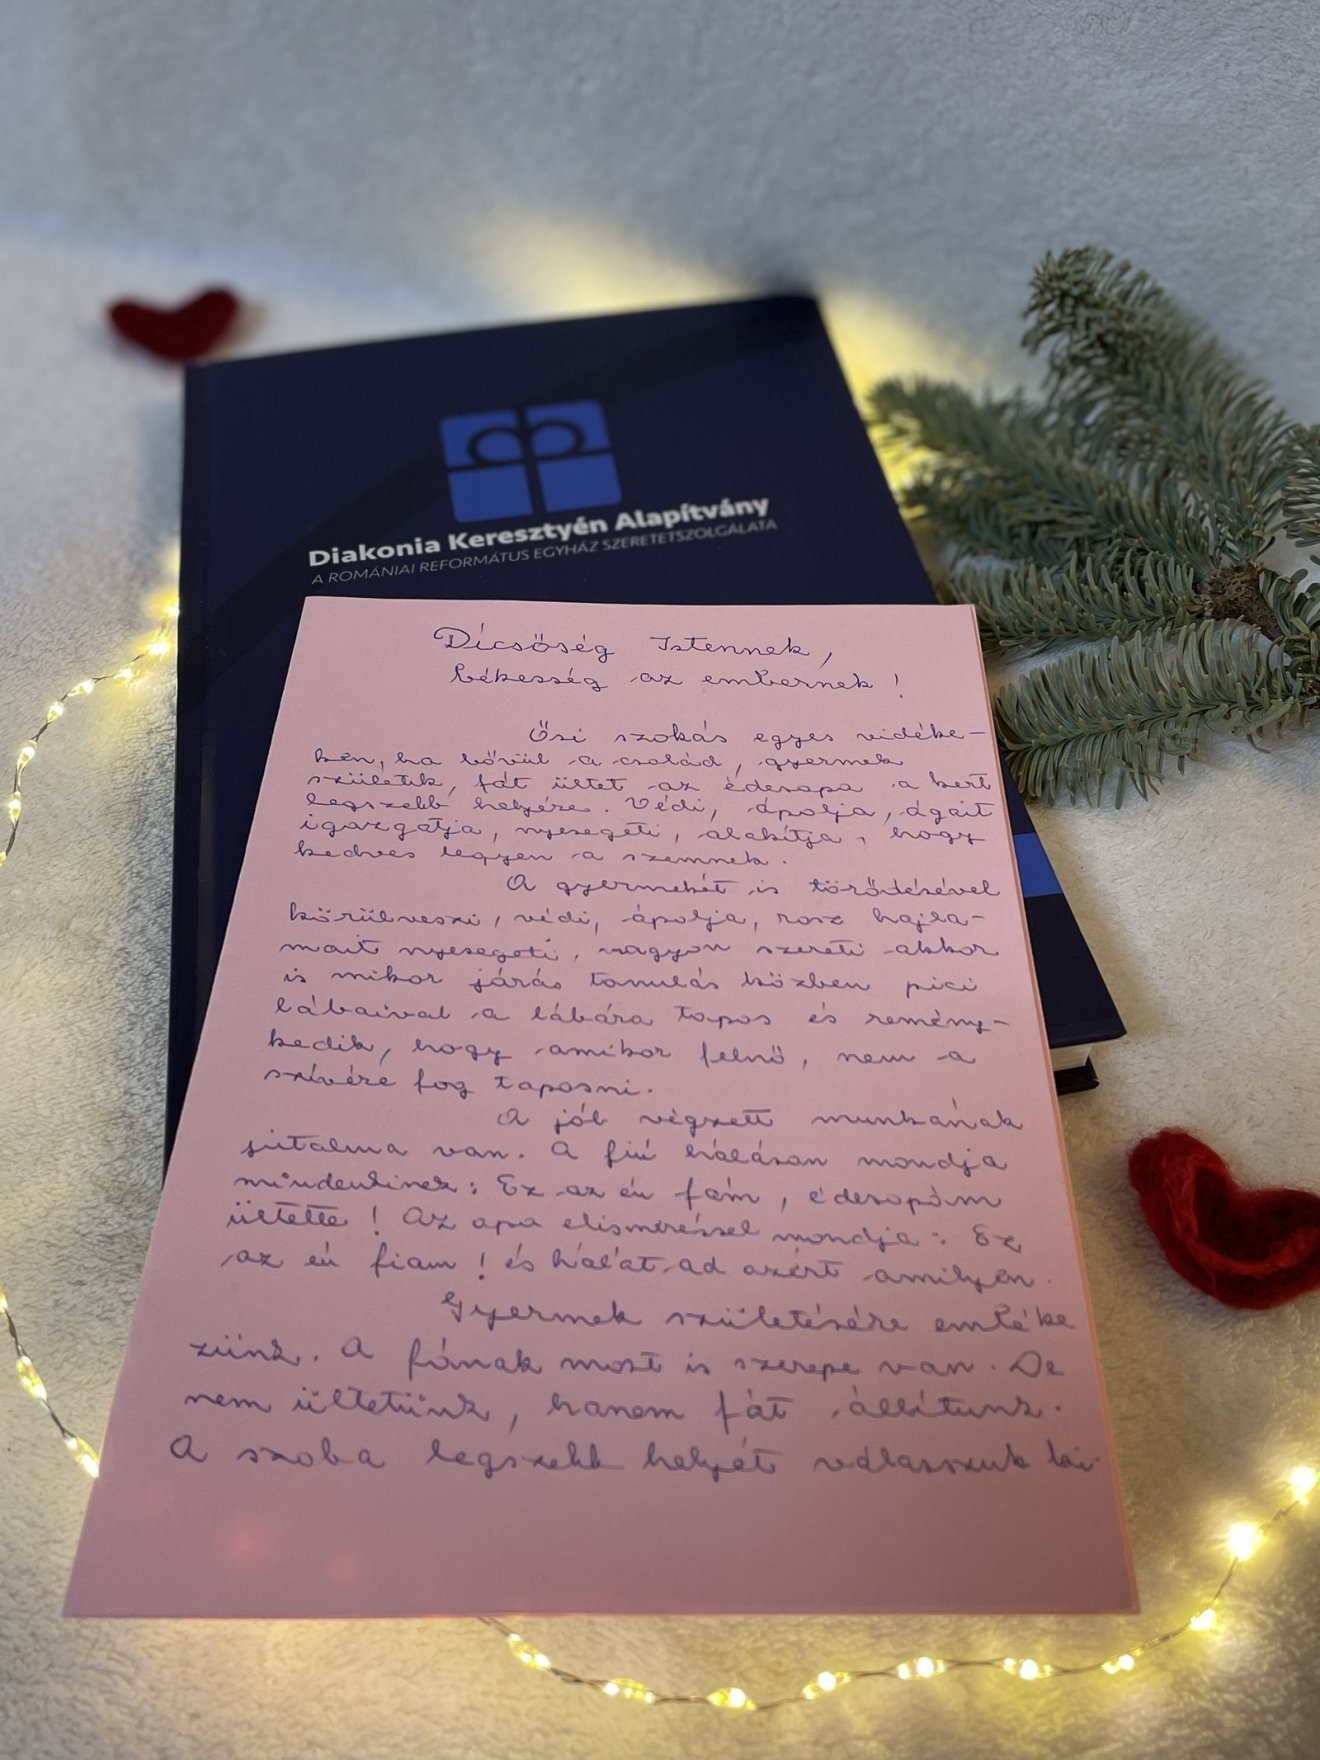 Diakonia Keresztyén Alapítvány
A ROMÁNIAI REFORMÁTUS EGYHÁZ SZERETETSZOLGÁLATA
Dícsőség Istennek,
békesség az embernek!
Ősi szokás egyes vidéke-
ken, ha bővül a család, gyermek
születik, fát ültet az édesapa a kert
legszebb helyére. Védi, ápolja, ágait
igazgatja, nyesegeti, alakítja, hogy
kedves legyen a szemnek.
A gyermekét is törődésével
körülveszi, védi, ápolja, rosz hajla-
mait nyesegeti, nagyon szereti akkor
is mikor járás tanulás közben pici
lábaival a lábára tapos és remény-
kedik, hogy amikor felnő, nem a
szívére fog taposni.
A jól végzett munkának
jutalma van. A fiú hálásan mondja
mindenkinek: Ez az én fám, édesapám
ültette! Az apa elismeréssel mondja: Ez
az én fiam! és hálát ad azért amilyen.
Gyermek születésére emléke
zünk. A fának most is szerepe van. De
nem ültetünk, hanem fát állítunk.
A szoba legszebb helyét válasszuk ki.